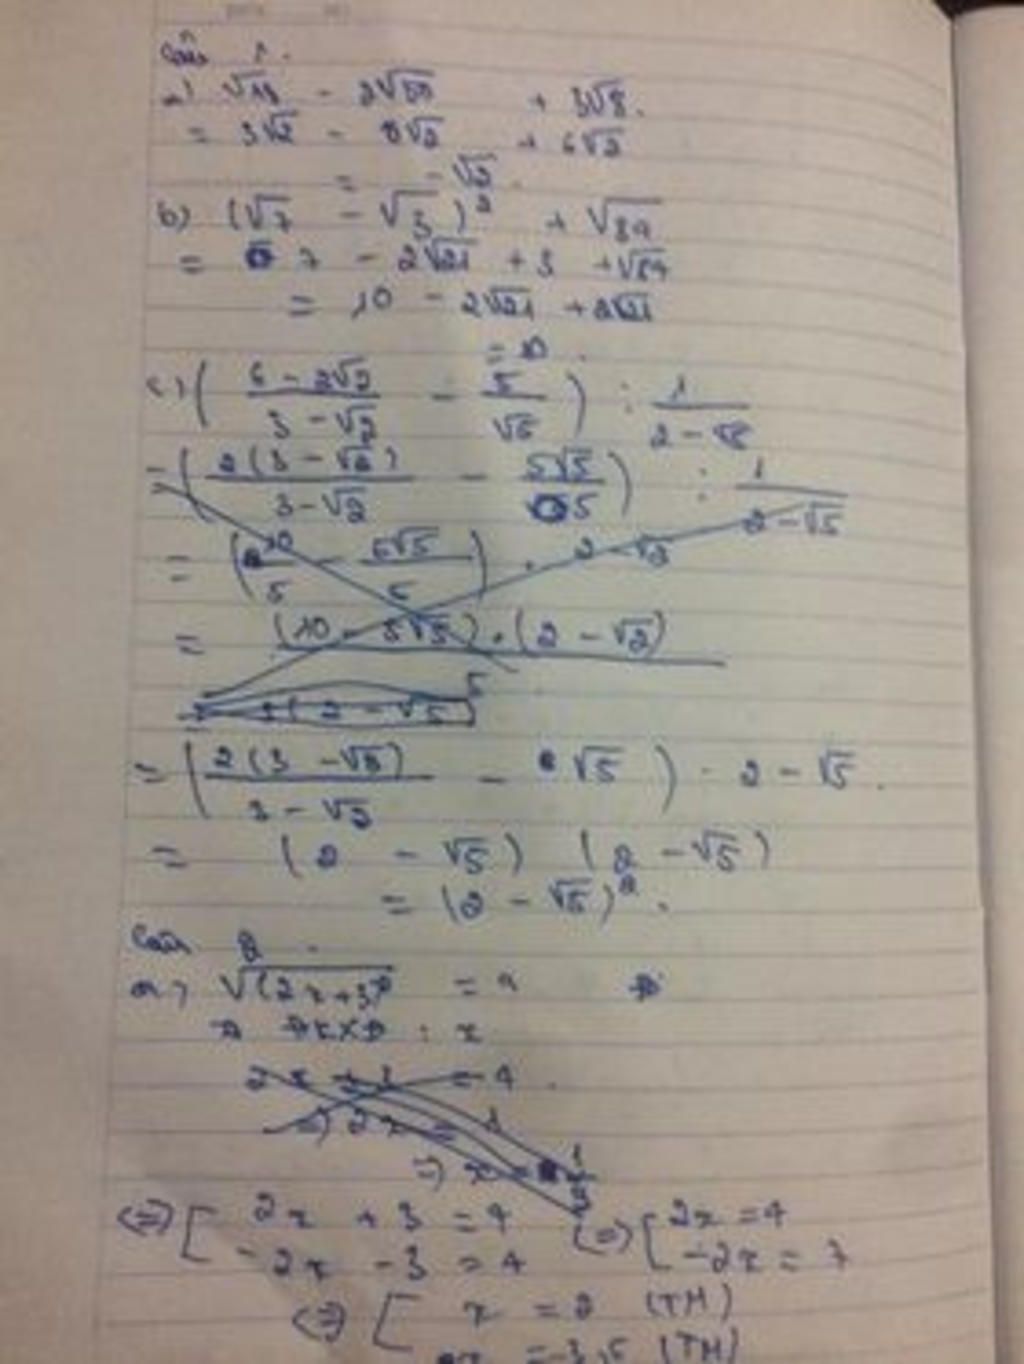 Câu 1.
a) √18 - 2√50 + 3√8.
= 3√2 - 8√2 + 6√2
= -√2.
b) (√7 - √3)² + √84
= 7 - 2√21 + 3 + √84
= 10 - 2√21 + 2√21
= 10.
c) ( (6 - 2√2)/(3 - √2) - 5/√5 ) : 1/(2 - √5)
= ( 2(3 - √2)/(3 - √2) - 5√5/5 ) : 1/(2 - √5)
= ( 10/5 - 5√5/5 ) . 2 - √2
= (10 - 5√5) . (2 - √2)/5
= ( 2(3 - √2)/(3 - √2) - √5 ) . 2 - √5.
= (2 - √5) (2 - √5)
= (2 - √5)².
Câu 2.
a) √(2x+3)² = 4
2x + 3 = 4.
=> 2x = 1
=> x = 1/2
<=> [ 2x + 3 = 4 <=> [ 2x = 4
-2x - 3 = 4 -2x = 7
<=> [ x = 2 (TM)
x = -3,5 (TM)